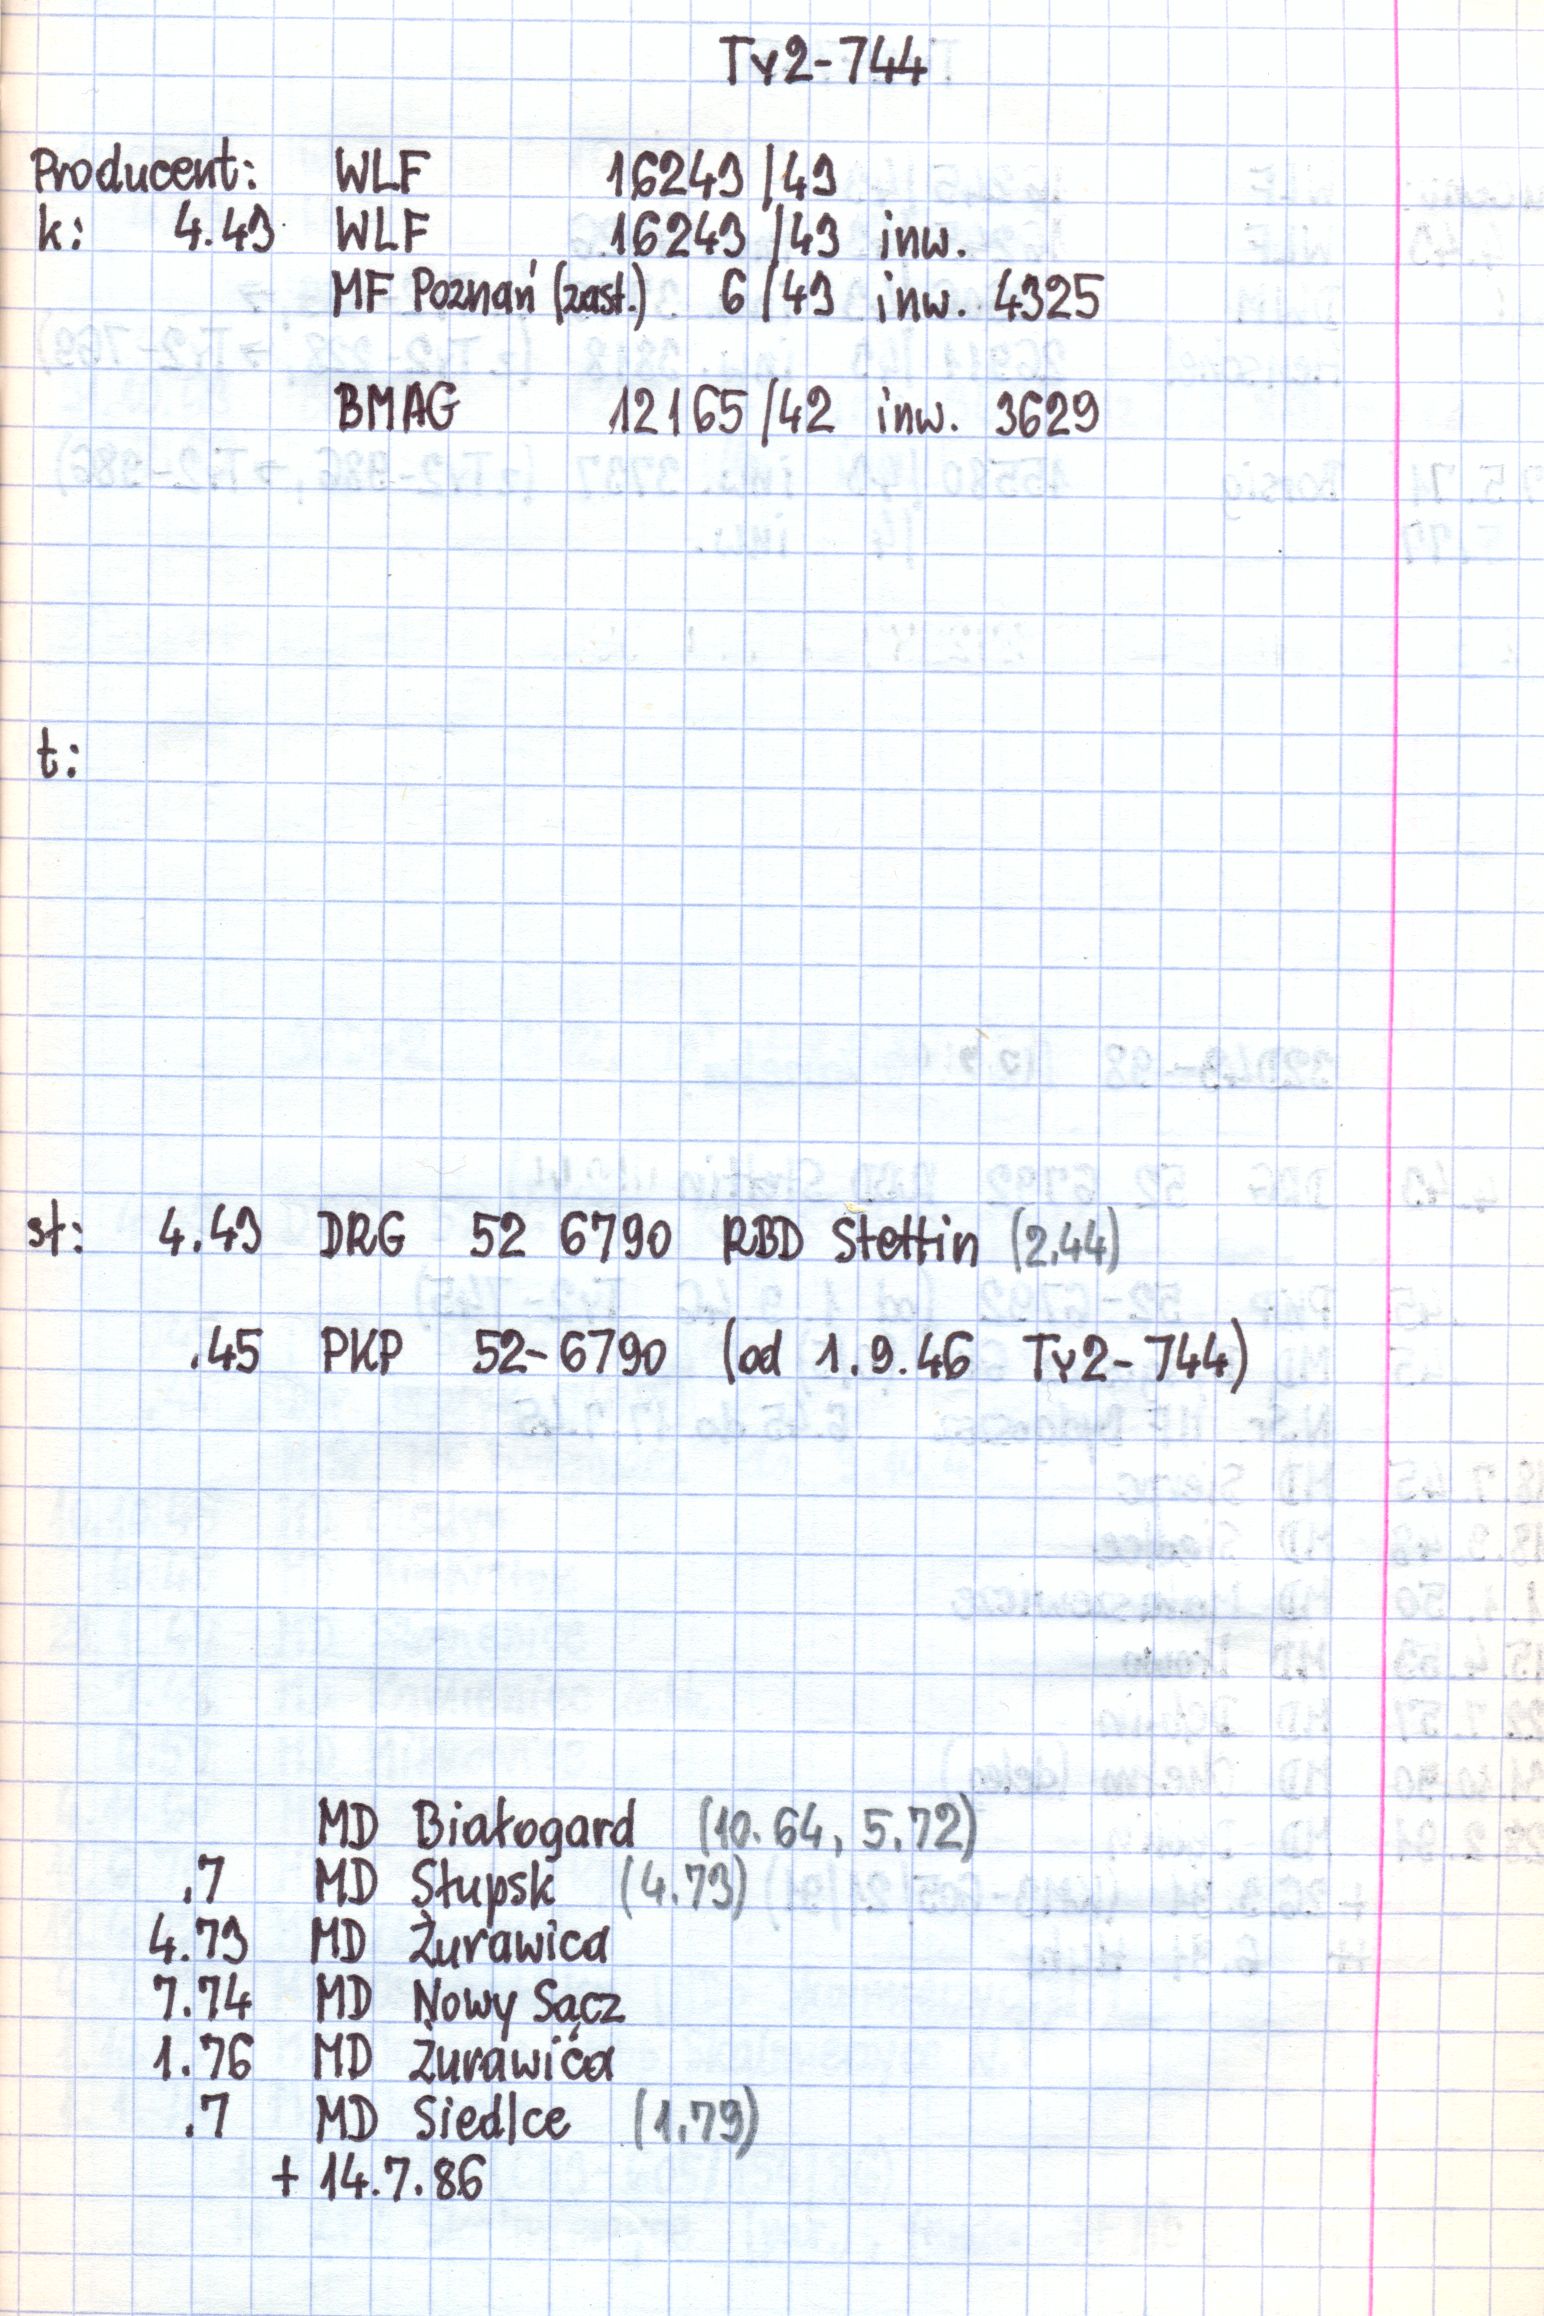 Ty2-744
Producent: WLF 16243/43
k: 4.43 WLF 16243/43 inw.
MF Poznań (zast.) 6/43 inw. 4325
BMAG 12165/42 inw. 3629
t:
st: 4.43 DRG 52 6790 RBD Stettin (2.44)
.45 PKP 52-6790 (od 1.9.46 Ty2-744)
MD Białogard (10.64, 5.72)
.7 MD Słupsk (4.73)
4.73 MD Żurawica
7.74 MD Nowy Sącz
1.76 MD Żurawica
.7 MD Siedlce (1.79)
+ 14.7.86